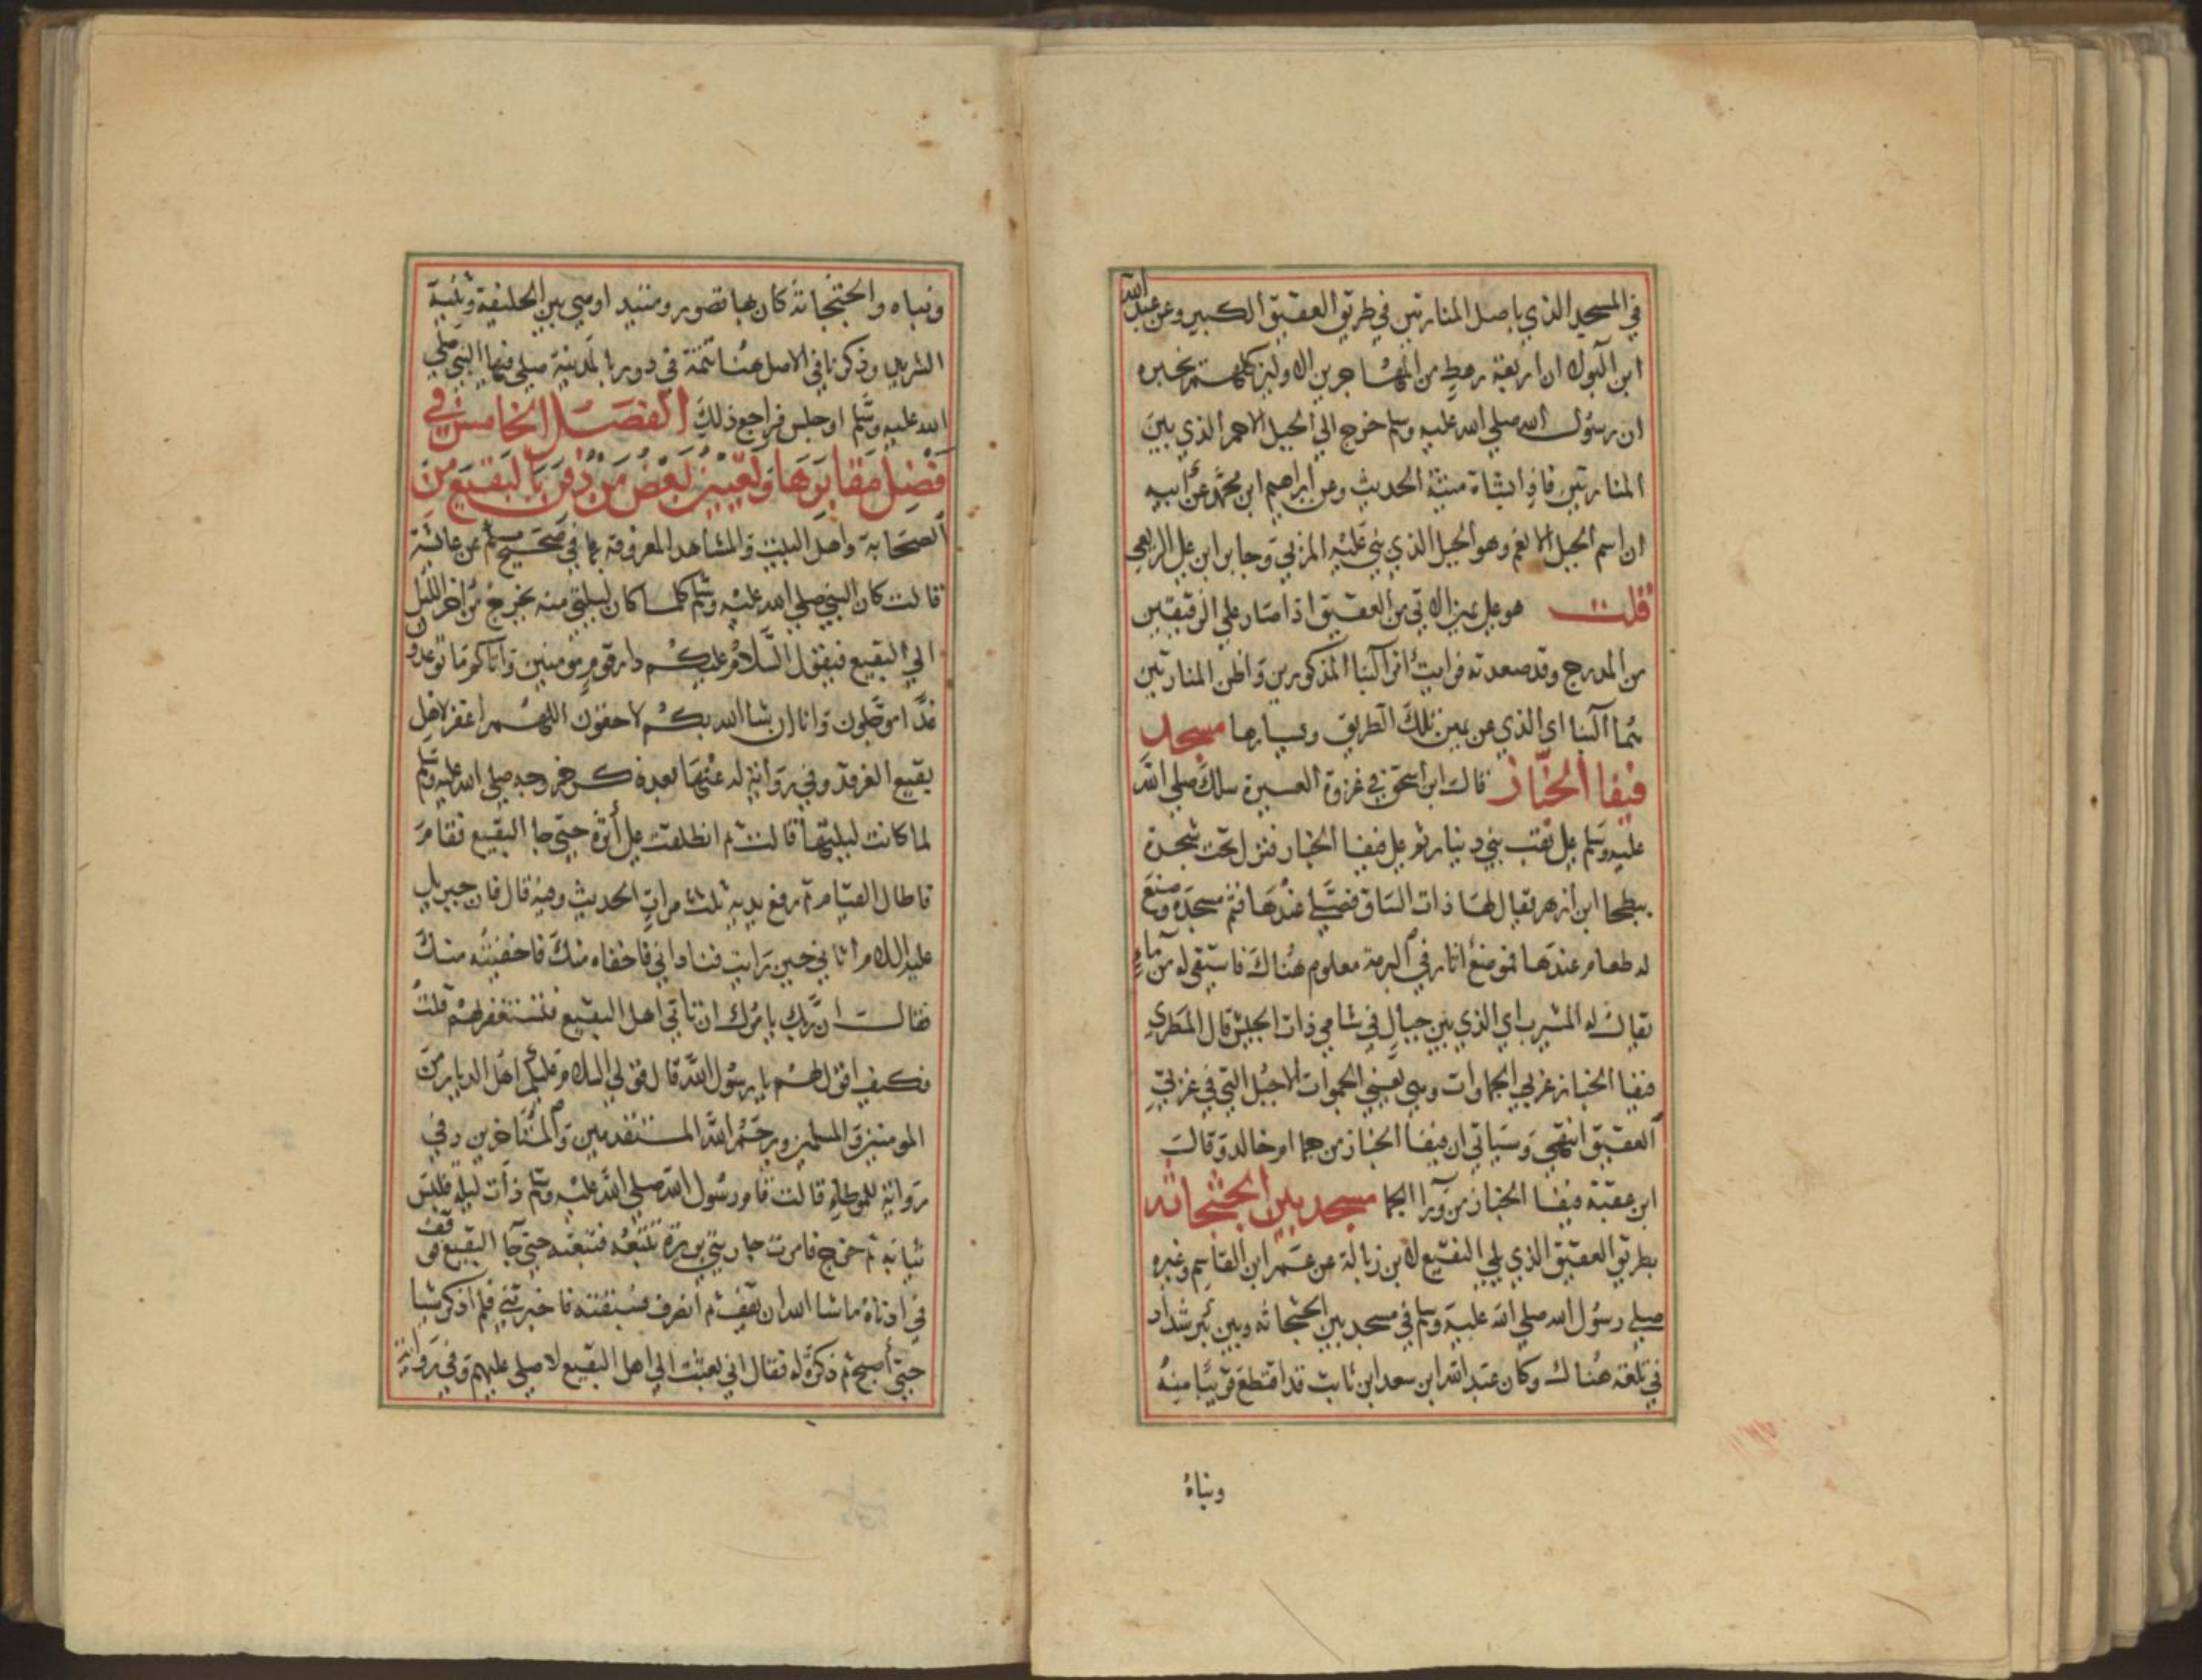 في المسجد الذي باصل المنارتين في طريق العقيق الكبير وعن عبد الله
ابن البولا ان اربعة رهط من المهاجرين الاولين كلهم يخبره
ان رسول الله صلي الله عليه وسلم خرج الي الجبل الاحمر الذي بين
المنارتين فاذا بشاة منتنة الحديث وعن ابراهيم ابن محمد عن ابيه
ان اسم الجبل الانعم وهو الجبل الذي بني عليه المزني وجابر ابن علي الربعي
قلت هو علي يمين الاتي من العقيق اذا صار علي الرقيقين
من المدرج وقد صعدته فرايت اثر البنا المذكورين واظن المنارتين
ثما البنا اي الذي عن يمين تلك الطريق ويسارها مسجد
فيفا الخبار قال ابن اسحق في غزوة العسيرة سلك صلي الله
عليه وسلم علي نقب بني دينار ثم علي فيفا الخبار فنزل تحت شجرة
ببطحا ابن ازهر يقال لها ذات الساق فصلي عندها فثم مسجده وصنع
له طعام عندها فموضع اثافي البرمة معلوم هناك فاستقي له من ما
يقال له المشيرب اي الذي بين جبال في شامي ذات الجيش قال المطري
فيفا الخبار غربي الجماوات وهي يعني الجموات الاجبل التي في غربي
العقيق انتهي وسياتي ان فيفا الخبار من جما ام خالد وقال
ابن عقبة فيفا الخبار من ورا الجما مسجد بين الجثجاثه
بطريق العقيق الذي يلي النقيع لابن زبالة عن عمر ابن القاسم وغيره
صلي رسول الله صلي الله عليه وسلم في مسجد بين الجثجاثه وبين بير شداد
في تلعة هناك وكان عبد الله ابن سعد ابن ثابت قد اقتطع قريبا منه
وبناه
وبناه والجثجاثة كان بها قصور ومتبد اوهي بين الحليفة وثنية
الشريد وذكرنا في الاصل هنا تتمة في دور بالمدينة صلي فيها النبي صلي
الله عليه وسلم او جلس فراجع ذلك الفصل الخامس في
فضل مقابرها وتعيين بعض من دفن بالبقيع من
الصحابة واهل البيت والمشاهد المعروفة بما في صحيح مسلم عن عائشة
قالت كان النبي صلي الله عليه وسلم كلما كان ليلتي منه يخرج من اخر الليل
الي البقيع فيقول السلام عليكم دار قوم مومنين واتاكم ما توعدون
غدا موجلون وانا ان شا الله بكم لاحقون اللهم اغفر لاهل
بقيع الغرقد وفي رواية له عنها بعد ذكر خروجه صلي الله عليه وسلم
لما كانت ليلتها قالت ثم انطلقت علي اثره حتي جا البقيع فقام
فاطال القيام ثم رفع يديه ثلث مرات الحديث وفيه قال فان جبريل
عليه السلام اتاني حين رايت فناداني فاخفاه منك فاخفيته منك
فقال ان ربك يامرك ان تاتي اهل البقيع فتستغفر لهم قلت
فكيف اقول لهم يا رسول الله قال قولي السلام عليكم اهل الديار من
المومنين والمسلمين ويرحم الله المستقدمين والمستاخرين وفي
رواية للموطا قالت قام رسول الله صلي الله عليه وسلم ذات ليلة فلبس
ثيابه ثم خرج فامرت جاريتي بريرة تتبعه فتبعته حتي جا البقيع فوقف
في ادناه ما شا الله ان يقف ثم انصرف فسبقته فاخبرتني فلم اذكر شيا
حتي اصبح ثم ذكرت له فقال اني بعثت الي اهل البقيع لاصلي عليهم وفي رواية